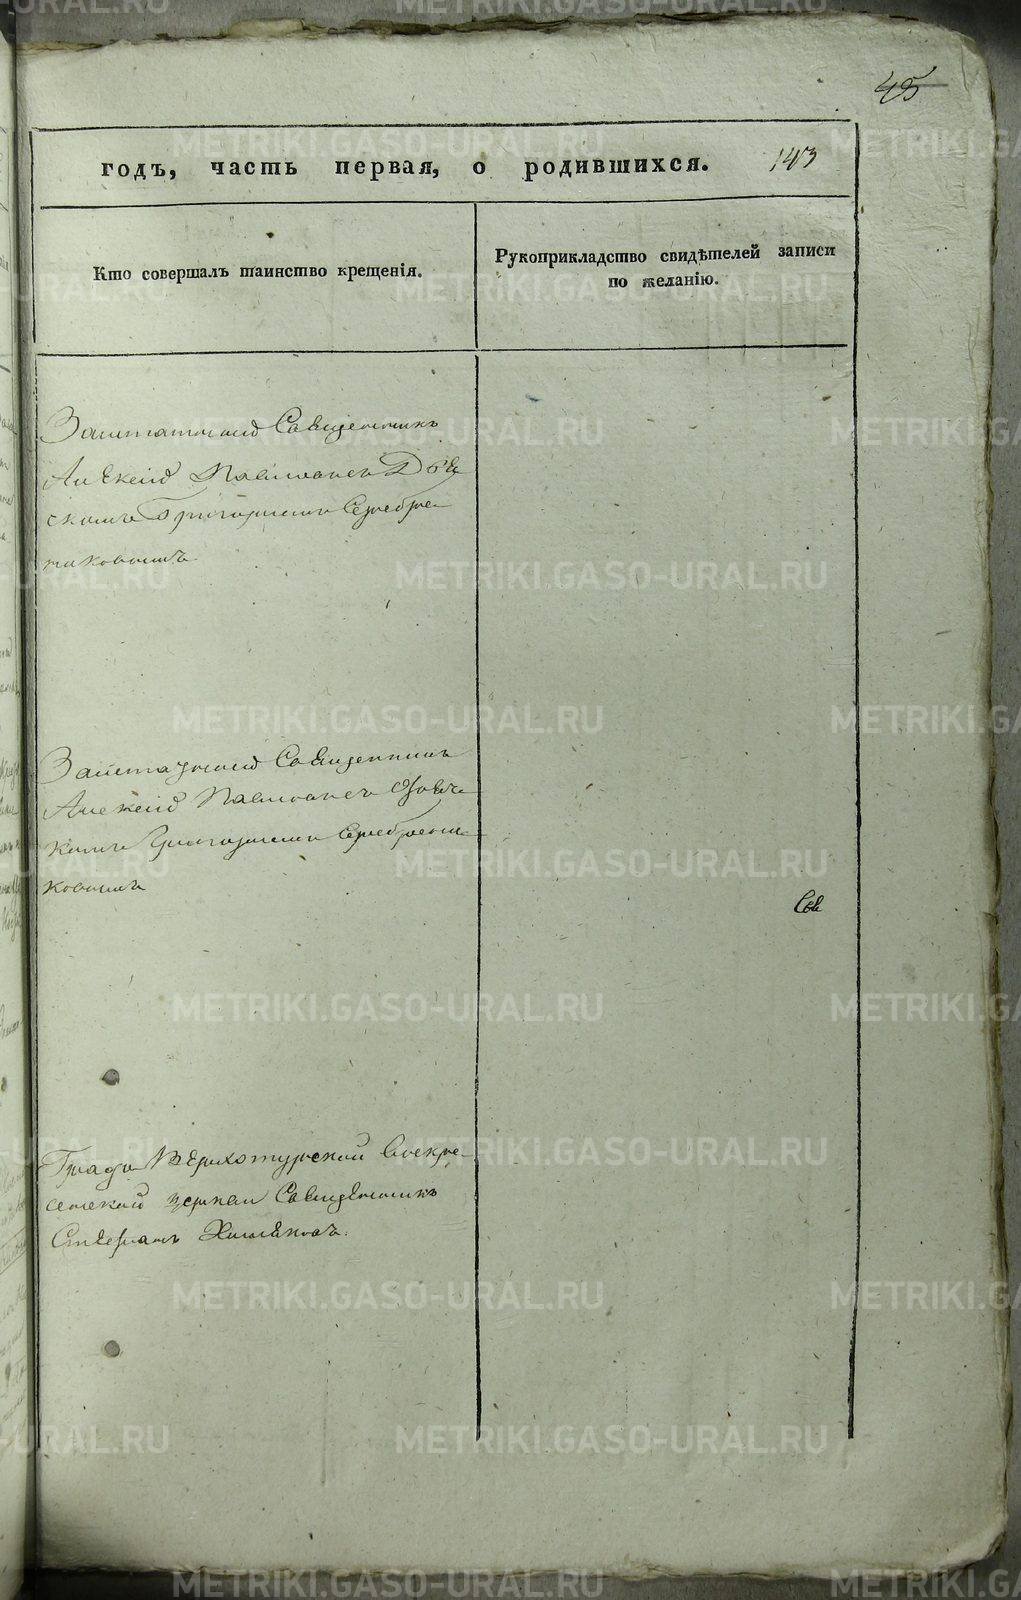 45
годъ, часть первая, о родившихся. 143
Кто совершалъ таинство крещенія.
Рукоприкладство свидѣтелей записи
по желанію.
Заштатной Священникъ
Алексей Павлиновъ
Григоріемъ Серебре-
никовымъ.
Заштатной Священникъ
Алексей Павлиновъ
Григорьемъ Серебрени-
ковымъ
Свя
Градо Верхотурской Воскре-
сенской церкви Священникъ
Стефанъ Хлыновъ.
METRIKI.GASO-URAL.RU